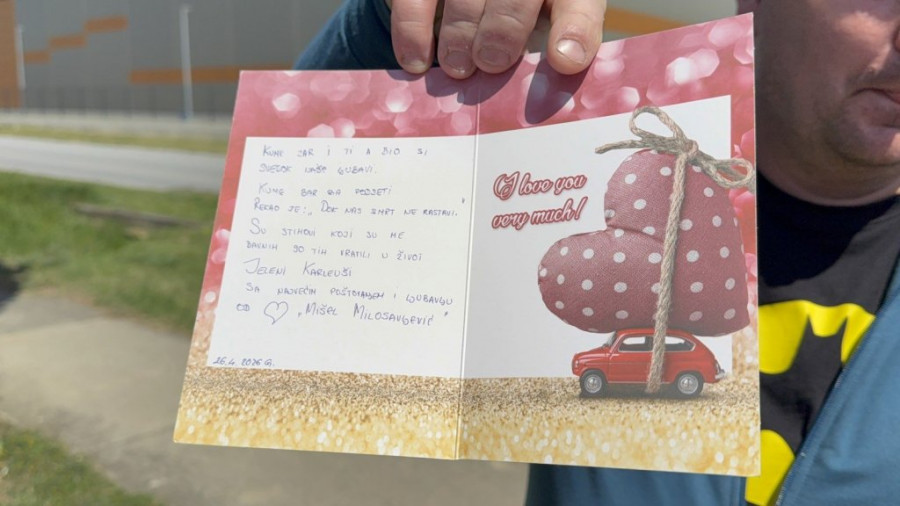 KUME JAR I TI A BIO SI
SVEDOK NAŠE LJUBAVI.
KUMA BAR GA PODSETI
REKAO JE: „DOK NAS SMRT NE RASTAVI."
SU STIHOVI KOJI SU ME
DAVNIH 90 TIH VRATILI U ŽIVOT
JELENI KARLEUŠI
SA NAJVEĆIM POŠTOVANJEM I LJUBAVLJU
OD „MIŠEL MILOSAVLJEVIĆ"
26.4.2026 G.
I love you
very much!